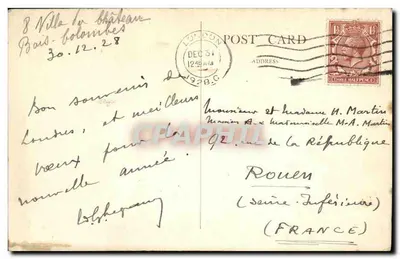 8 Villa du Château
Bois-Colombes
30.12.28
POST CARD
LONDON
DEC 31
1928
Bon souvenir de
Londres, et meilleurs
vœux pour la
nouvelle année.
Monsieur et madame H. Martin
Mr A. Martin
92, rue de la République
Rouen
(Seine-Inférieure)
(FRANCE)
CPARAMA